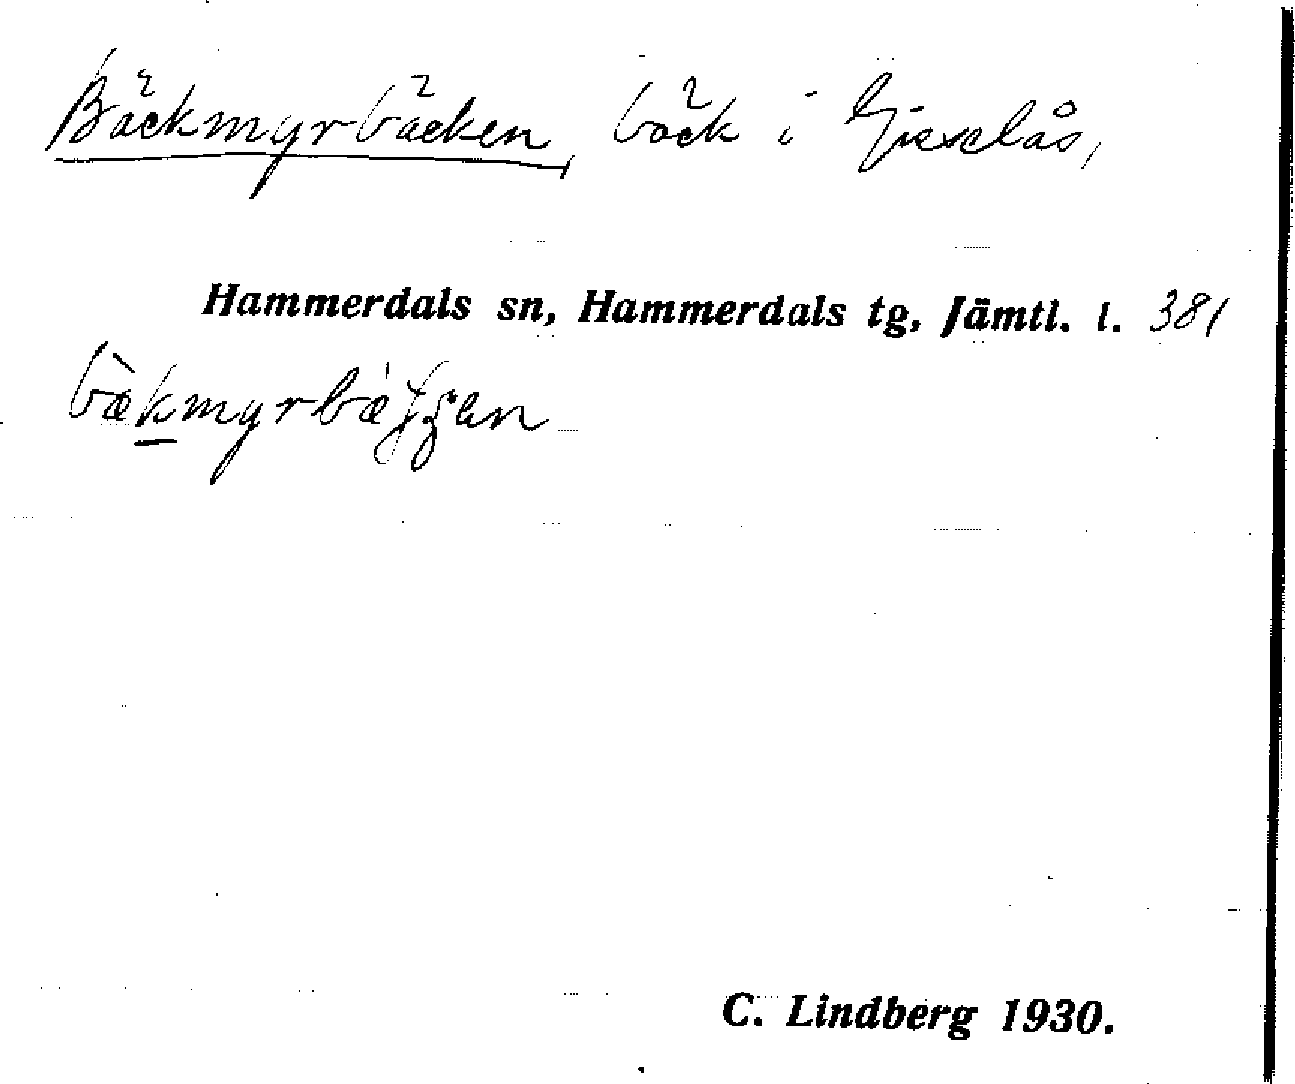 Bäckmyrbäcken, bäck i Gisselås,
Hammerdals sn, Hammerdals tg, Jämtl. l. 381
C. Lindberg 1930.